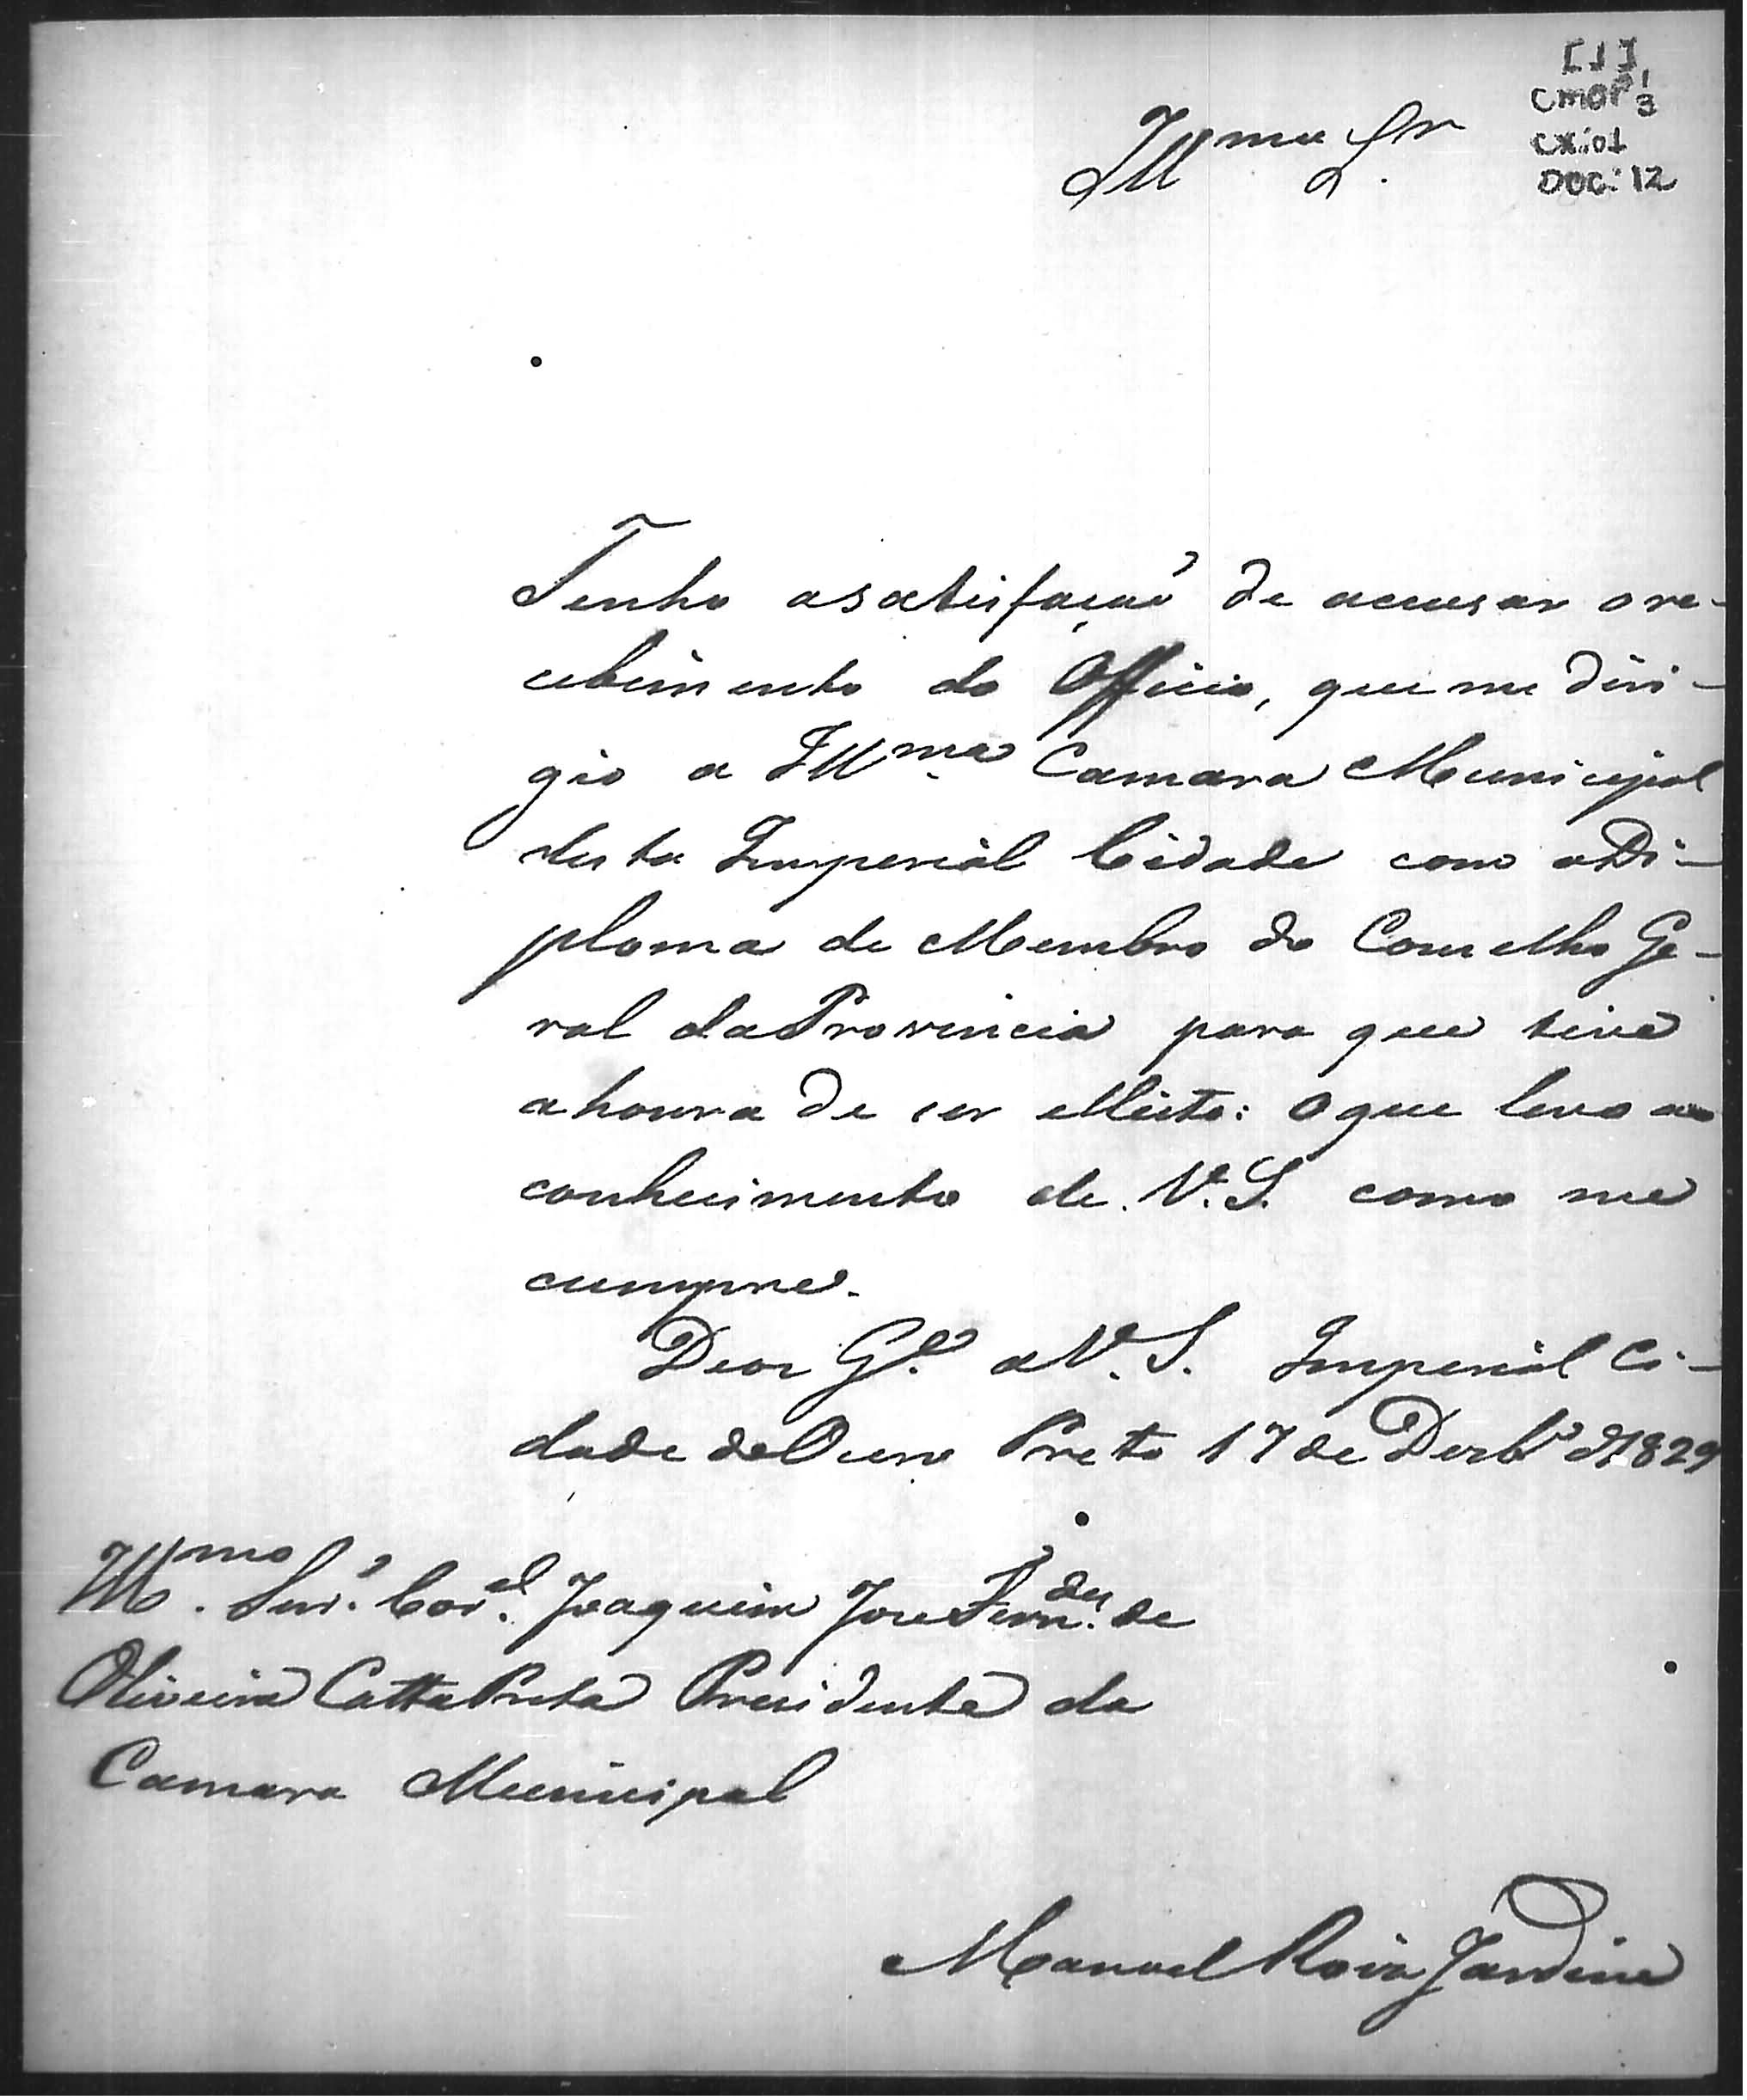 [1]
CMOP 3
CX: 01
DOC: 12
Illmo Sr.
Tenho a satisfação de accusar o re-
cebimento do Officio, que me diri-
gio a Illma. Camara Municipal
desta Imperial Cidade com o Di-
ploma de Membro do Conselho Ge-
ral da Provincia para que tive
a honra de ser elleito: o que levo ao
conhecimento de V. S. como me
cumpre.
Deos Ge. a V. S. Imperial Ci-
dade do Ouro Preto 17 de Dezbro d' 1829
Illmo. Snr. Corel. Joaquim Jose Ferndes. de
Oliveira Catta Preta Presidente da
Camara Municipal
Manoel Jardim